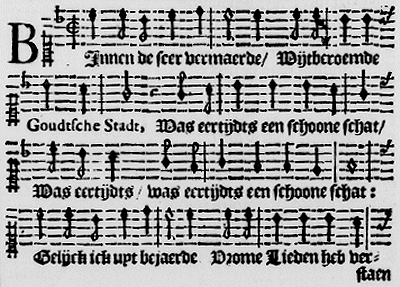 BJnnen de seer vermaerde/ Wijtberoemde
Goudtsche Stadt, Was eertijdts een schoone schat/
Was eertijdts/ was eertijdts een schoone schat:
Gelijck ick uyt bejaerde Vrome Lieden heb ver-
staen